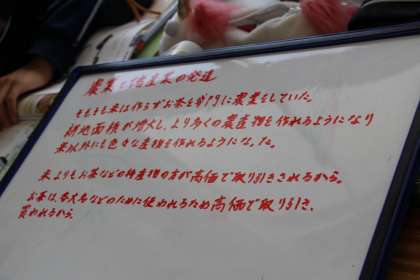 農業と諸産業の発達
そもそも米は作らずお茶を専門に農業をしていた。
耕地面積が増大し、より多くの農産物を作れるようになり
米以外にも色々な産物を作れるようになった。
米よりもお茶などの特産物の方が高価で取り引きされるから。
お茶は、各大名などのために使われるため高価で取り引き、
買われるから。